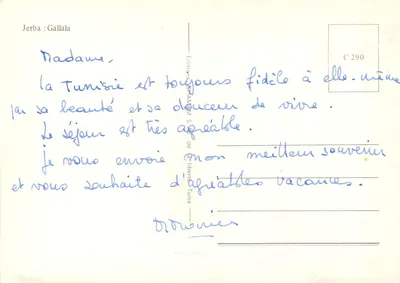 Jerba : Gallala
C 290
Madame,
la Tunisie est toujours fidèle à elle-même
par sa beauté et sa douceur de vivre.
Le séjour est très agréable.
Je vous envoie mon meilleur souvenir
et vous souhaite d'agréables vacances.